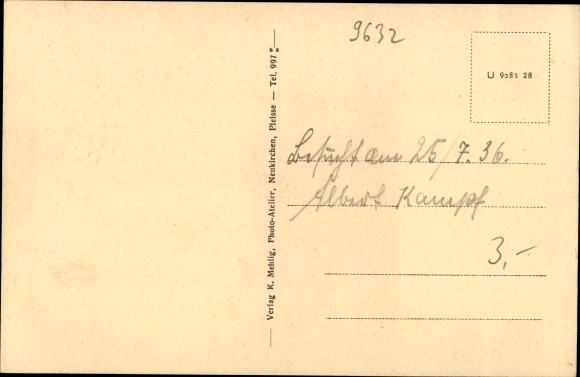 9632
U 9585 28
Verlag K. Mehlig, Photo-Atelier, Neukirchen, Pleisse — Tel. 997
Besucht am 25/7.36.
Albert Kampf
3,-